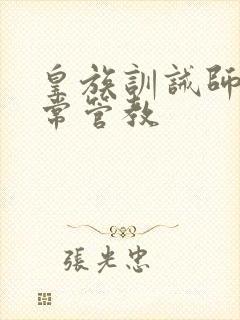 皇族訓誡師
常管教
張光忠